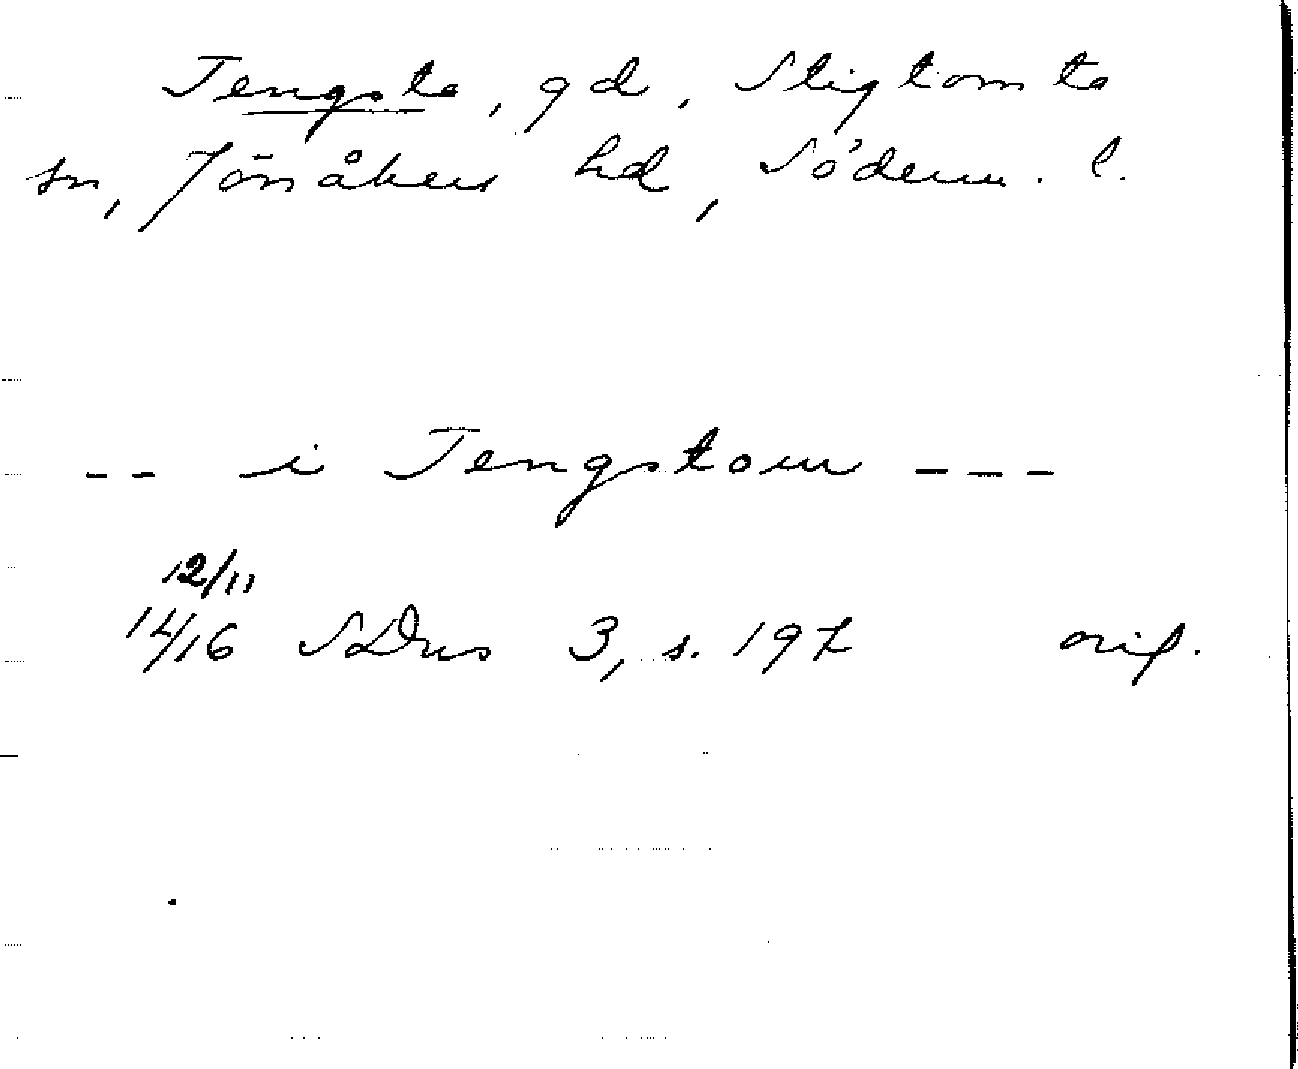 Tengsta, gd, Stigtomta
sn, Jönåkers hd, Söderm. l.
-- i Tengstom ---
12/11
1416 SDns 3, s. 197 orig.